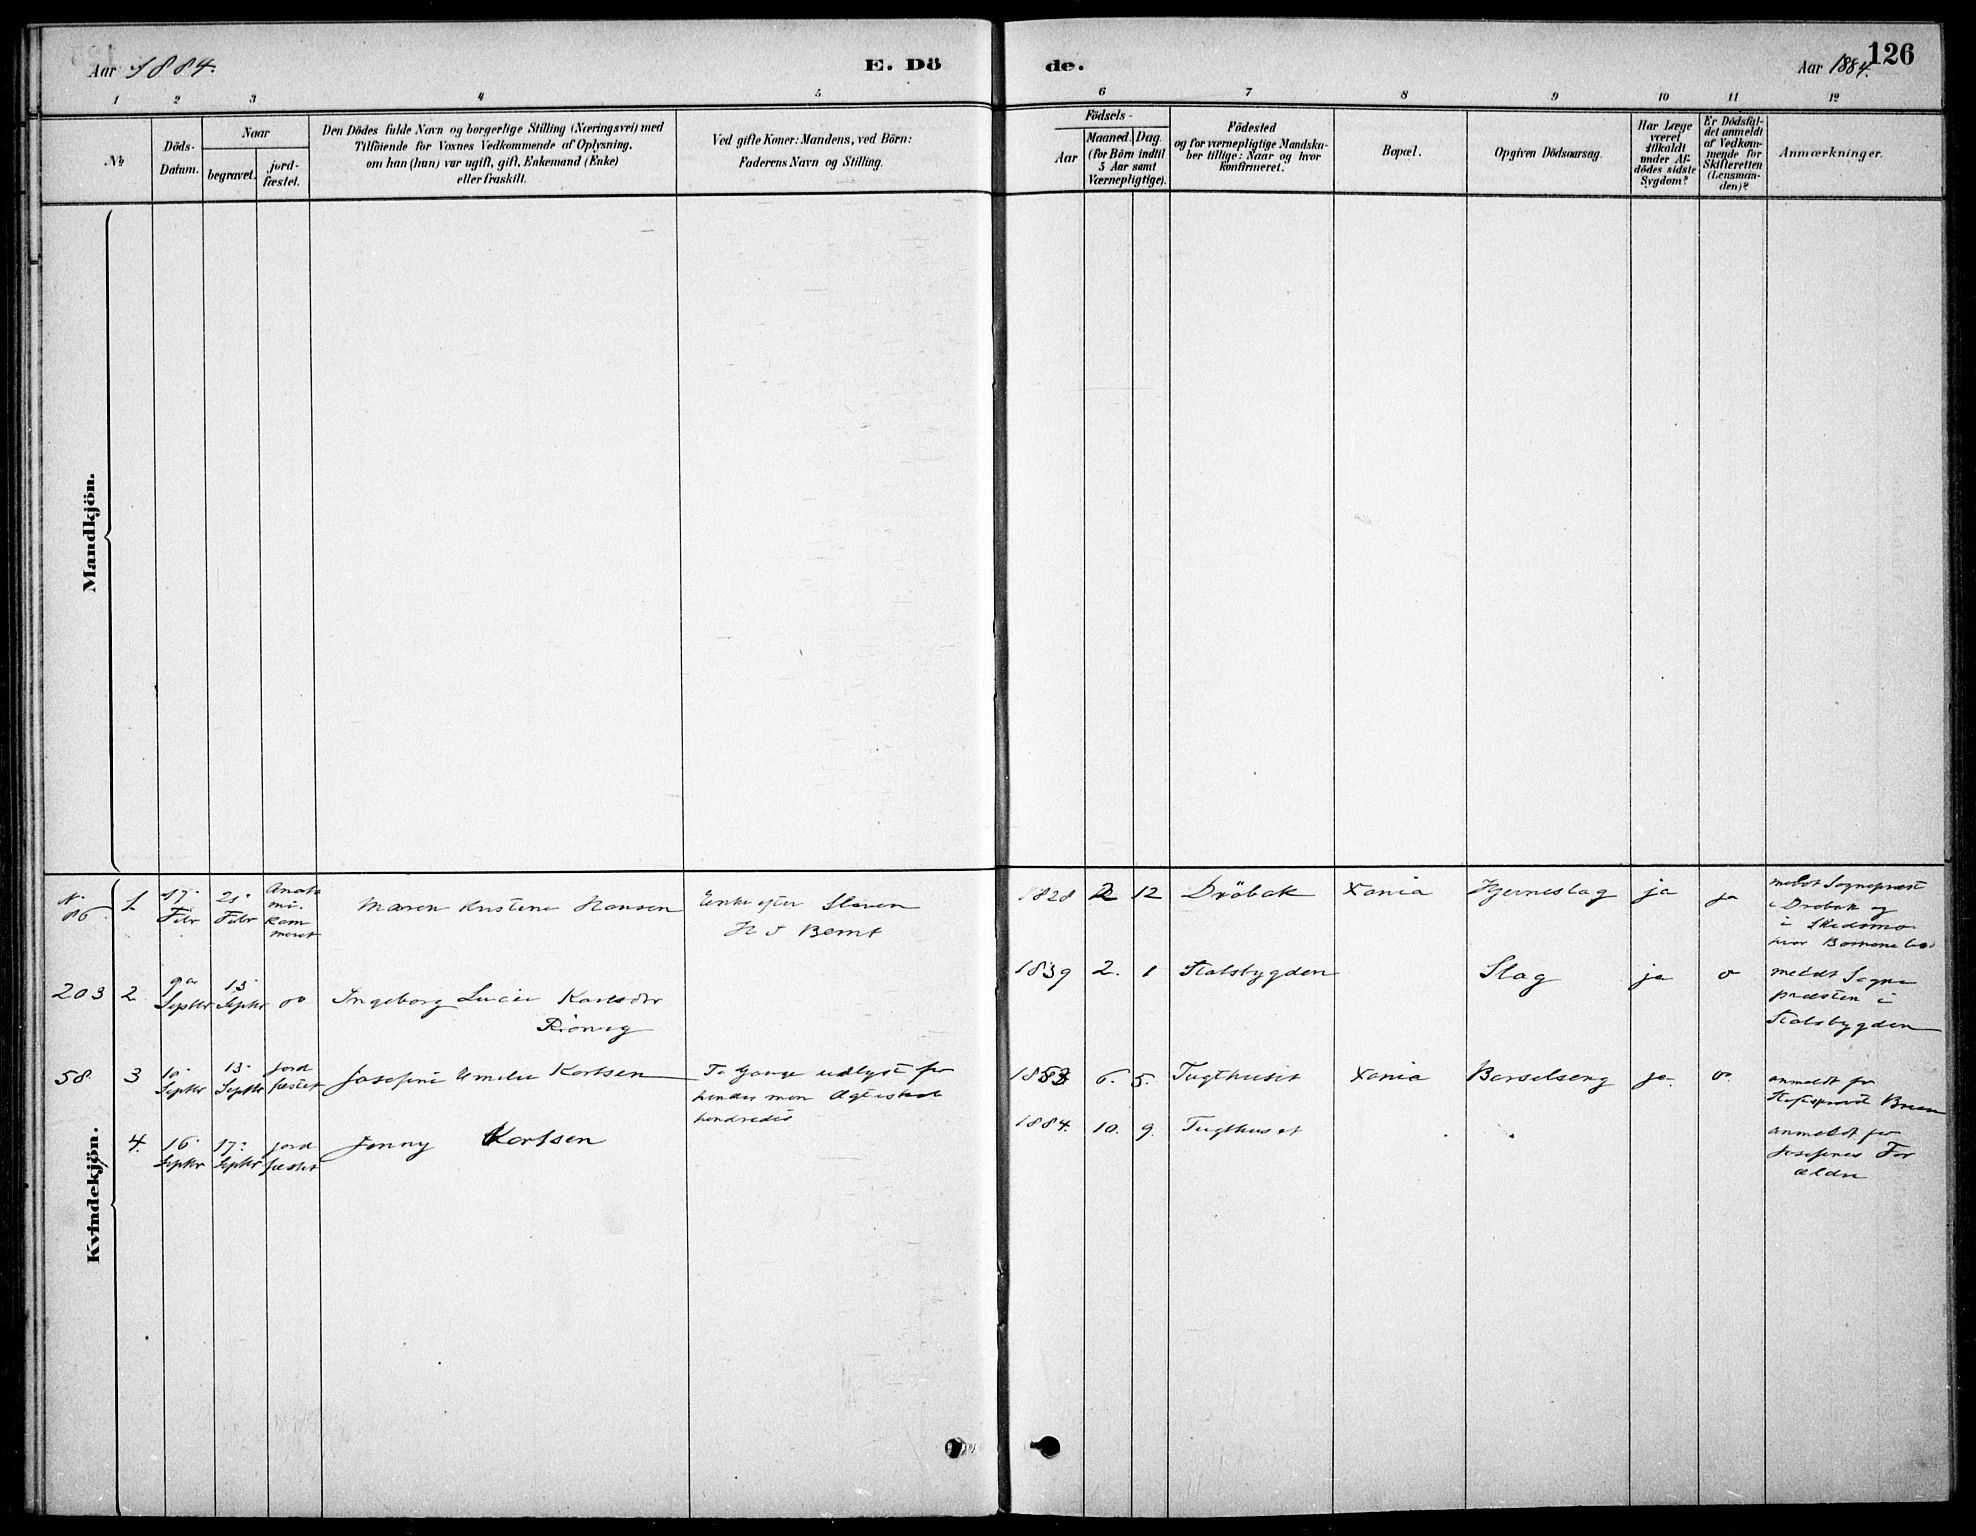 Aar 1884.
E. Dö
de.
Aar 1884.
126
1 2 3 4 5
6 7 8 9 10 11 12
No
Döds-
Datum.
Naar
begravet.
jord-
fæstet.
Den Dödes fulde Navn og borgerlige Stilling (Næringsvei) med
Tilföiende for Voxnes Vedkommende af Oplysning,
om han (hun) var ugift, gift, Enkemand (Enke)
eller fraskilt.
Ved gifte Koner: Mandens, ved Börn:
Faderens Navn og Stilling.
Födsels-
Aar
Maaned. Dag.
(for Börn indtil
5 Aar samt
Værnepligtige).
Födested
og for værnepligtige Mandska-
ber tillige: Naar og hvor
konfirmeret.
Bopæl.
Opgiven Dödsaarsag.
Har Læge
været
tilkaldt
under Af-
dödes sidste
Sygdom?
Er Dödsfal-
det anmeldt
af Vedkom-
mende for
Skifteretten
(Lensman-
den)?
Anmærkninger.
Mandkjön.
Kvindekjön.
N.
86
1.
17.
Febr
21.
Febr
Anato
mi.
kam
meret
Maren Kristine Hansen
Enke efter
1828 2 12 Dröbak Xania Hjerneslag ja ja
meldt Sognepræst
i Drøbak og
i Skedsmo
203 2
Septbr
13.
Septbr
Ingeborg Lucie Karlsdtr
1839 2. 1 Stolsbygden Slag ja
meldt Sogne
præsten i
Stolsbygden
58. 3
10.
Septbr
13.
Septbr
Jord
fæstet
Josefine Amelie Karlsen
To Gange udlyst for
1853 6. 5. Tugthuset Xania Barselseng ja.
anmeldt for
4.
16.
Septbr
17.
Septbr
Jord
fæstet
Jenny Karlsen
1884. 10. 9. Tugthuset
anmeldt for
Josefines For
ældre